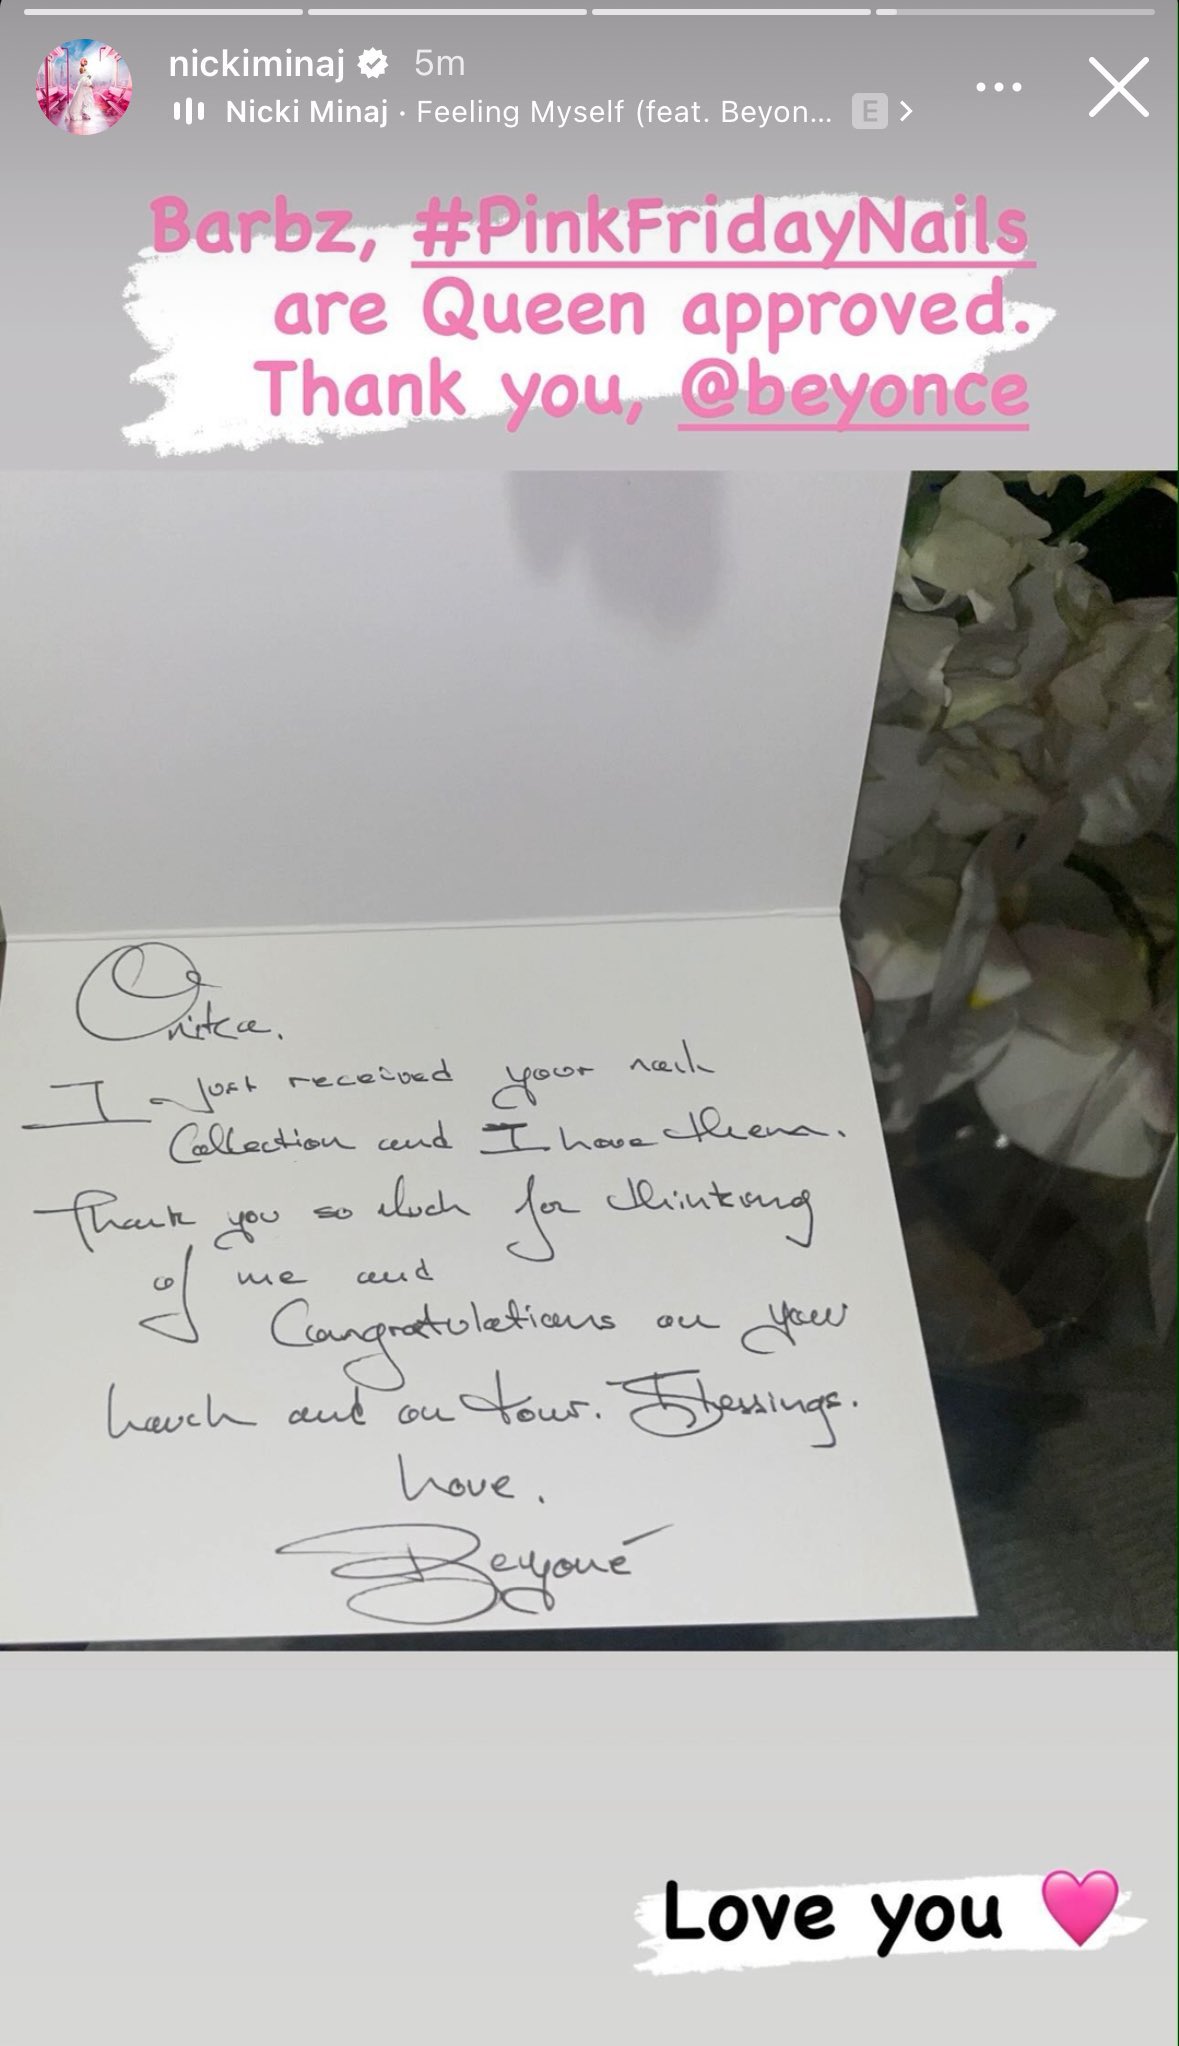 nickiminaj 5m
Nicki Minaj · Feeling Myself (feat. Beyon... E >
Barbz, #PinkFridayNails
are Queen approved.
Thank you, @beyonce
Onika.
I just received your nail
Collection and I love them.
Thank you so Much for thinking
of me and
Congratulations on your
launch and on tour. Blessings.
Love.
Beyoncé
Love you 🩷